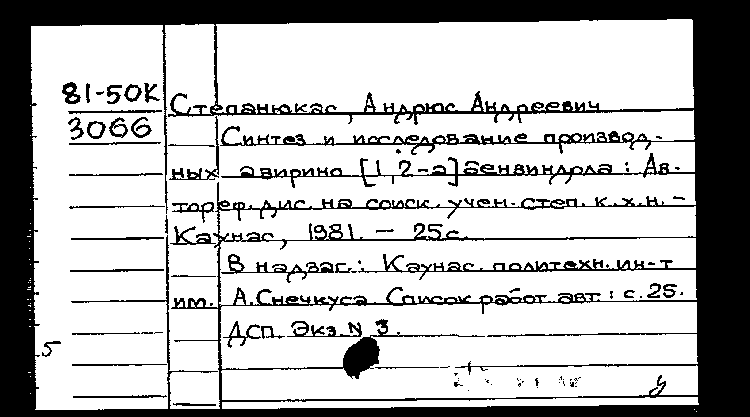 81-50К
3066
Степанюкас, Андрюс Андреевич
Синтез и исследование производ-
ных азирино [1,2-а]бензиндола : Ав-
тореф. дис. на соиск. учен. степ. к. х. н. -
Каунас, 1981. - 25с.
В надзаг.: Каунас. политехн. ин-т
им. А.Снечкуса. Список работ авт.: с.25.
ДСП. Экз. N 3.
5
у